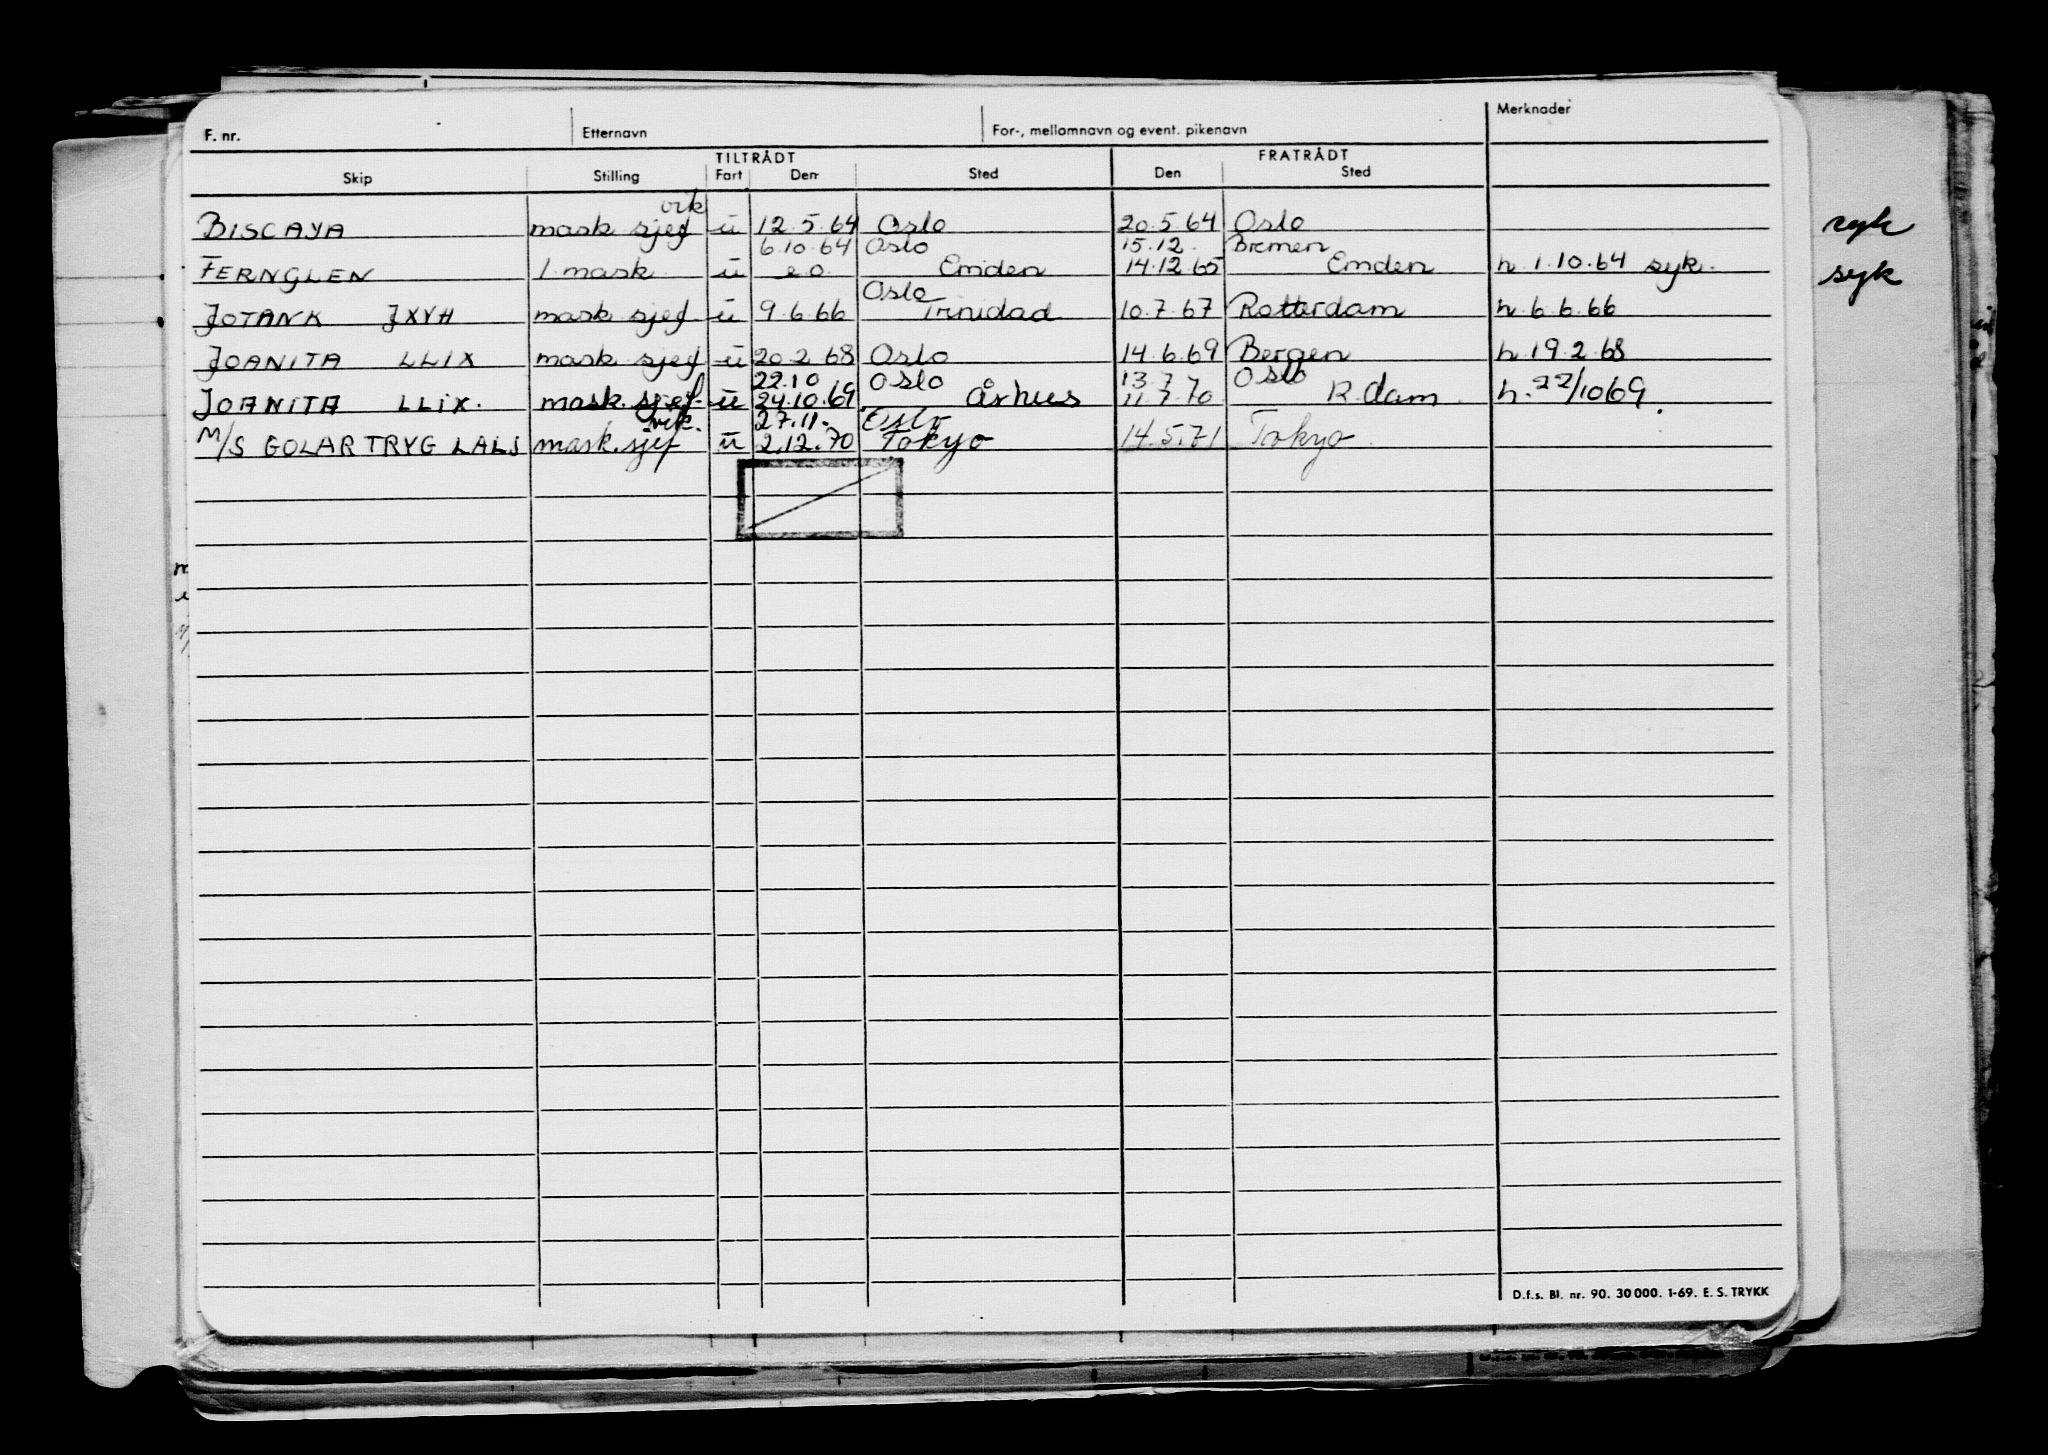 F. nr. Etternavn For-, mellomnavn og event. pikenavn Merknader
TILTRÅDT FRATRÅDT
Skip Stilling Fart Den Sted Den Sted
vik
BISCAYA mask sjef u 12.5.64 Oslo 20.5.64 Oslo
6.10.64 Oslo 15.12. Bremen
FERNGLEN 1 mask u e.o. Emden 14.12.65 Emden h 1.10.64 syk.
Oslo
JOTANK JXVH mask sjef u 9.6.66 Trinidad 10.7.67 Rotterdam h 6.6.66
JOANITA LLIX mask sjef u 20.2.68 Oslo 14.6.69 Bergen h 19.2.68
22.10 Oslo 13.7.70 Oslo
JOANITA LLIX. mask. sjef. u 24.10.69 Århus 11.7.70 R.dam h. 22/1069.
vik. 27.11. Oslo
M/S GOLAR TRYG LALS mask. sjef u 2.12.70 Tokyo 14.5.71 Tokyo
syk
syk
D.f.s. Bl. nr. 90. 30 000. 1-69. E. S. TRYKK